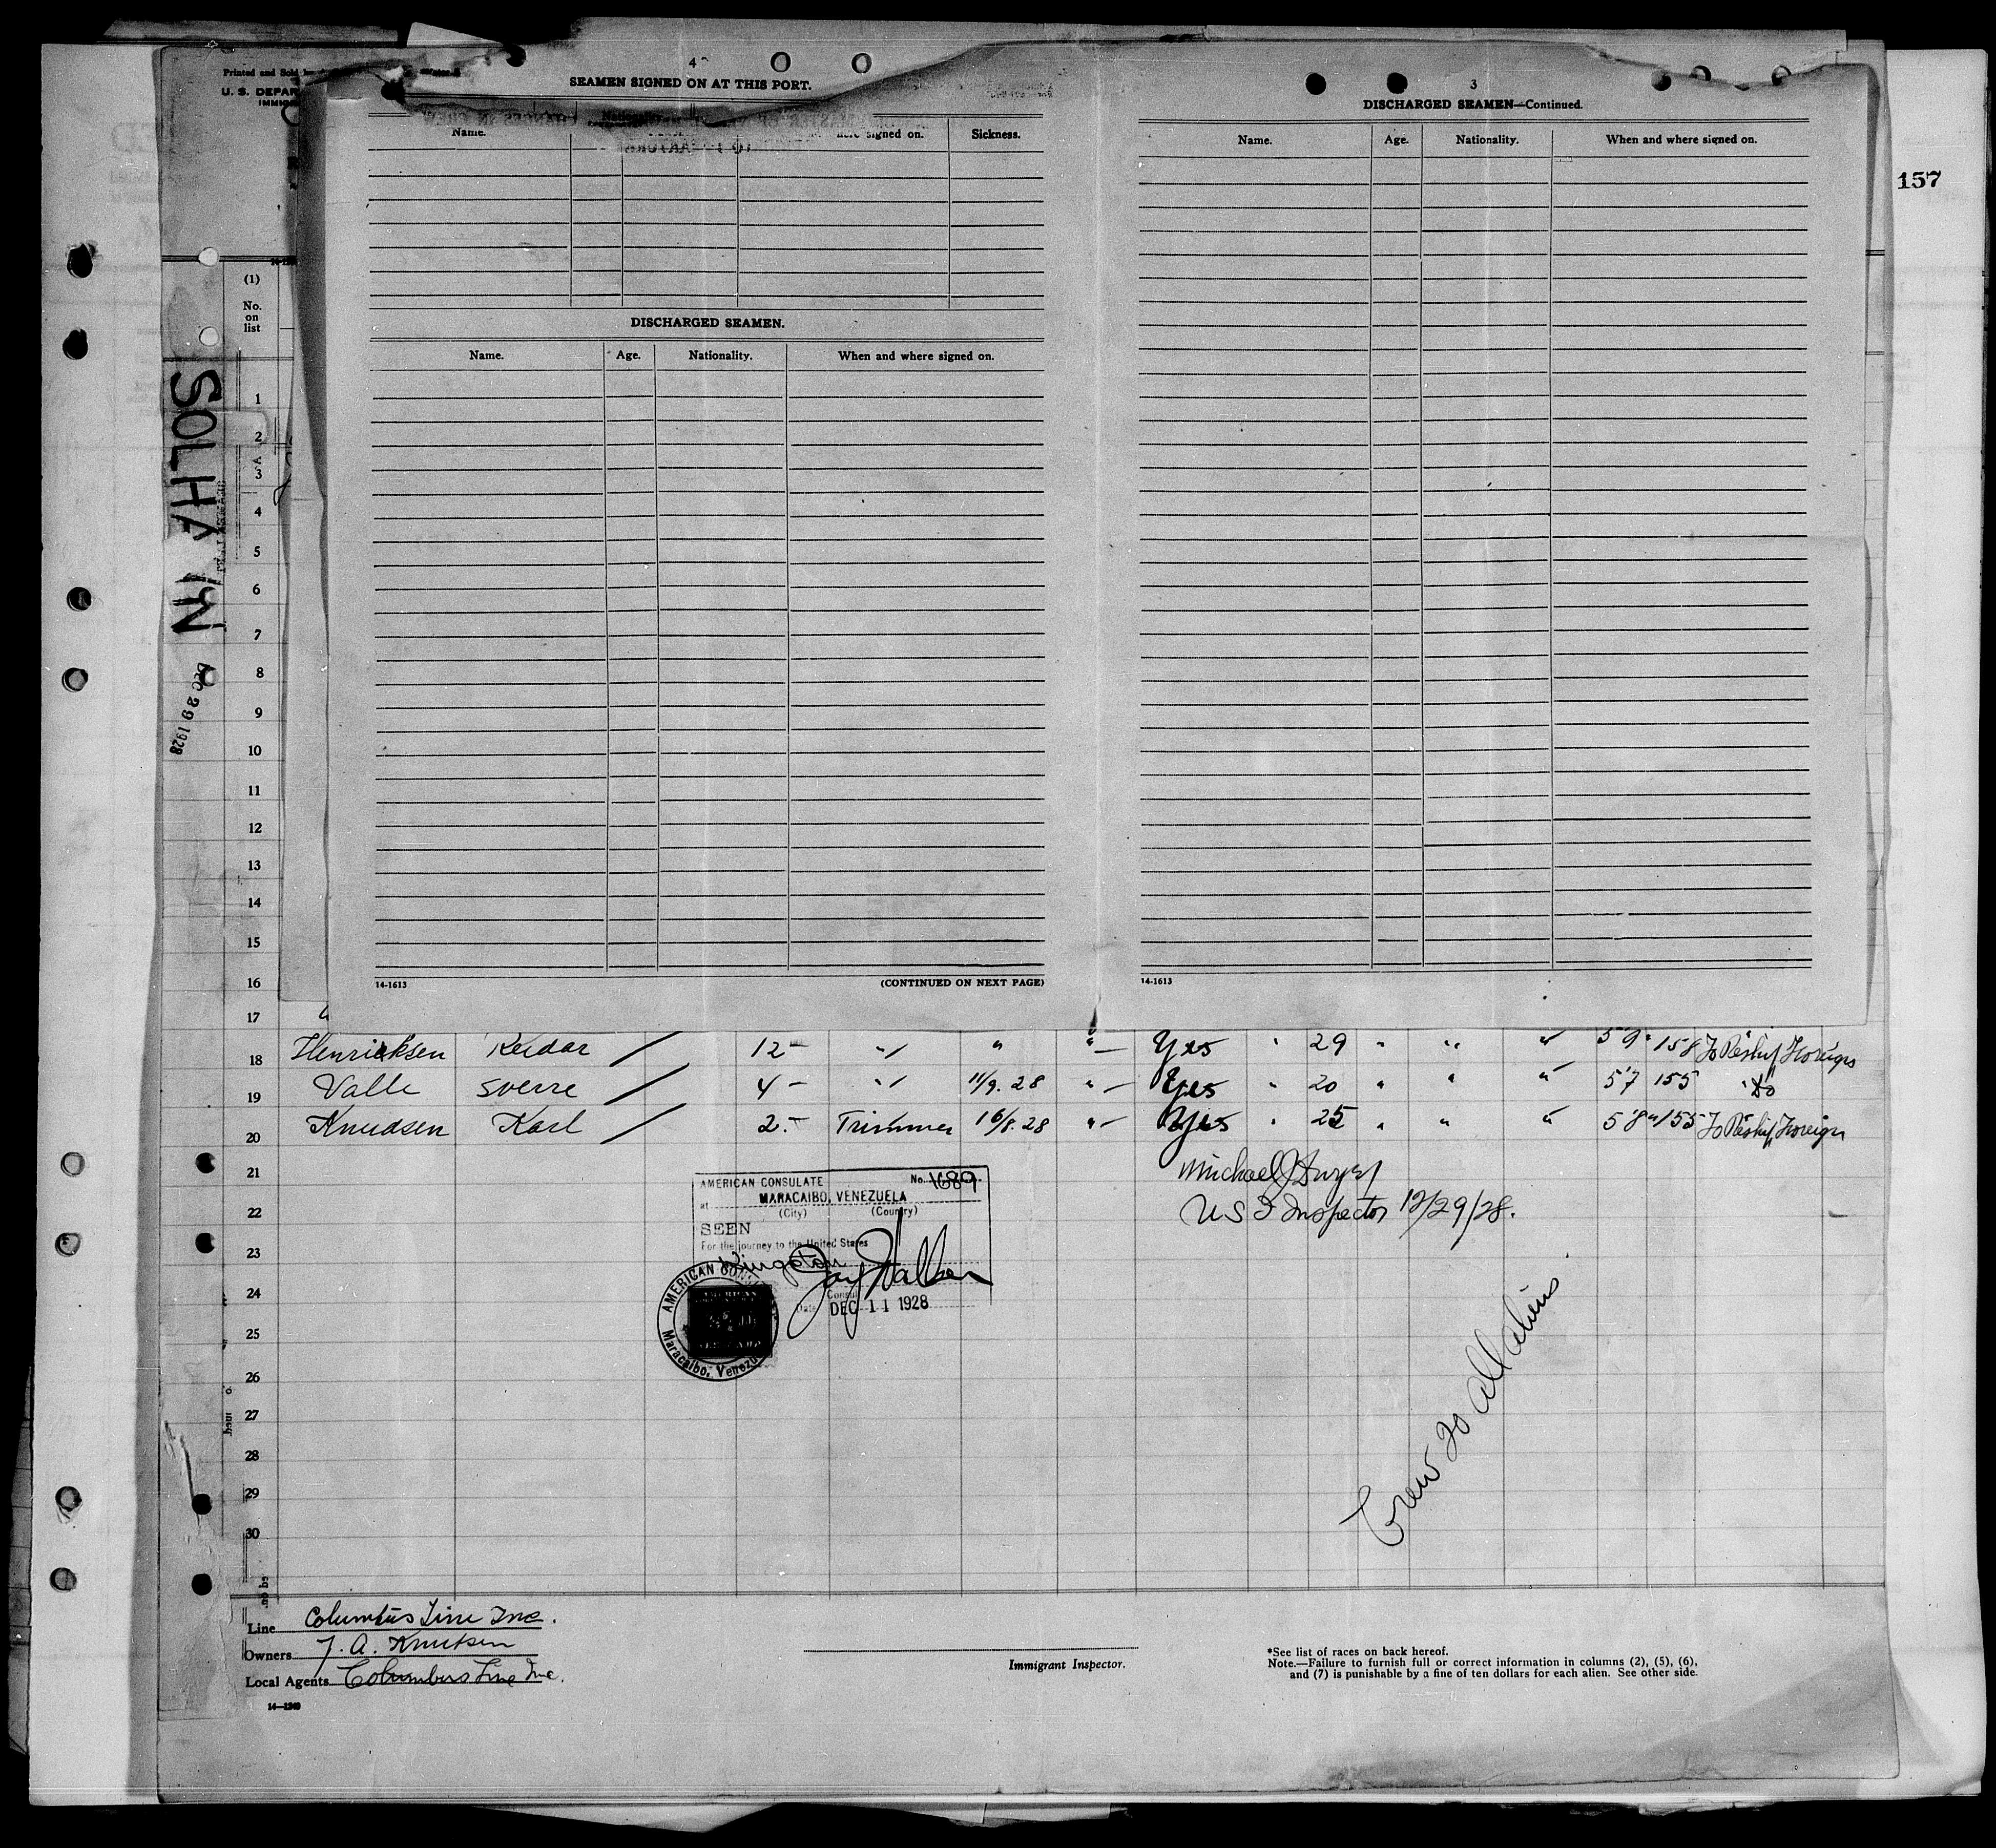 Printed and Sold
U. S. DEPAR
IMMIG
4
SEAMEN SIGNED ON AT THIS PORT.
Name. Nationality. here signed on. Sickness.
DISCHARGED SEAMEN.
Name. Age. Nationality. When and where signed on.
14-1613 (CONTINUED ON NEXT PAGE)
3
DISCHARGED SEAMEN—Continued.
Name. Age. Nationality. When and where signed on.
14-1613
157
SOLHAVN
DEC 29 1928
(1)
No.
on
list
1
2
3
4
5
6
7
8
9
10
11
12
13
14
15
16
17
18 Henriksen Reidar / 12- "/ " "- Yes " 29 " " " 5'9" 158 To Reship Foreign
19 Valle Sverre / 4- "/ 11/9.28 "- Yes " 20 " " " 5'7 155 "Do"
20 Knudsen Karl / 2.- Trimmer 16/8.28 "- Yes " 25 " " " 5'8" 155 To Reship Foreign
21
22
23
24
25
26
27
28
29
30
Michael J Dwyer
US I Inspector 12/29/28.
AMERICAN CONSULATE No. 1689
at MARACAIBO, VENEZUELA
(City) (Country)
SEEN
For the journey to the United States
Kingston
Consul
Date DEC 11 1928
AMERICAN
Maracaibo, Venezu
Crew 20 all aliens
Line Columbus Line Inc.
Owners J. A. Knutsen
Local Agents Columbus Line Inc.
14—1240
Immigrant Inspector.
*See list of races on back hereof.
Note.—Failure to furnish full or correct information in columns (2), (5), (6),
and (7) is punishable by a fine of ten dollars for each alien. See other side.